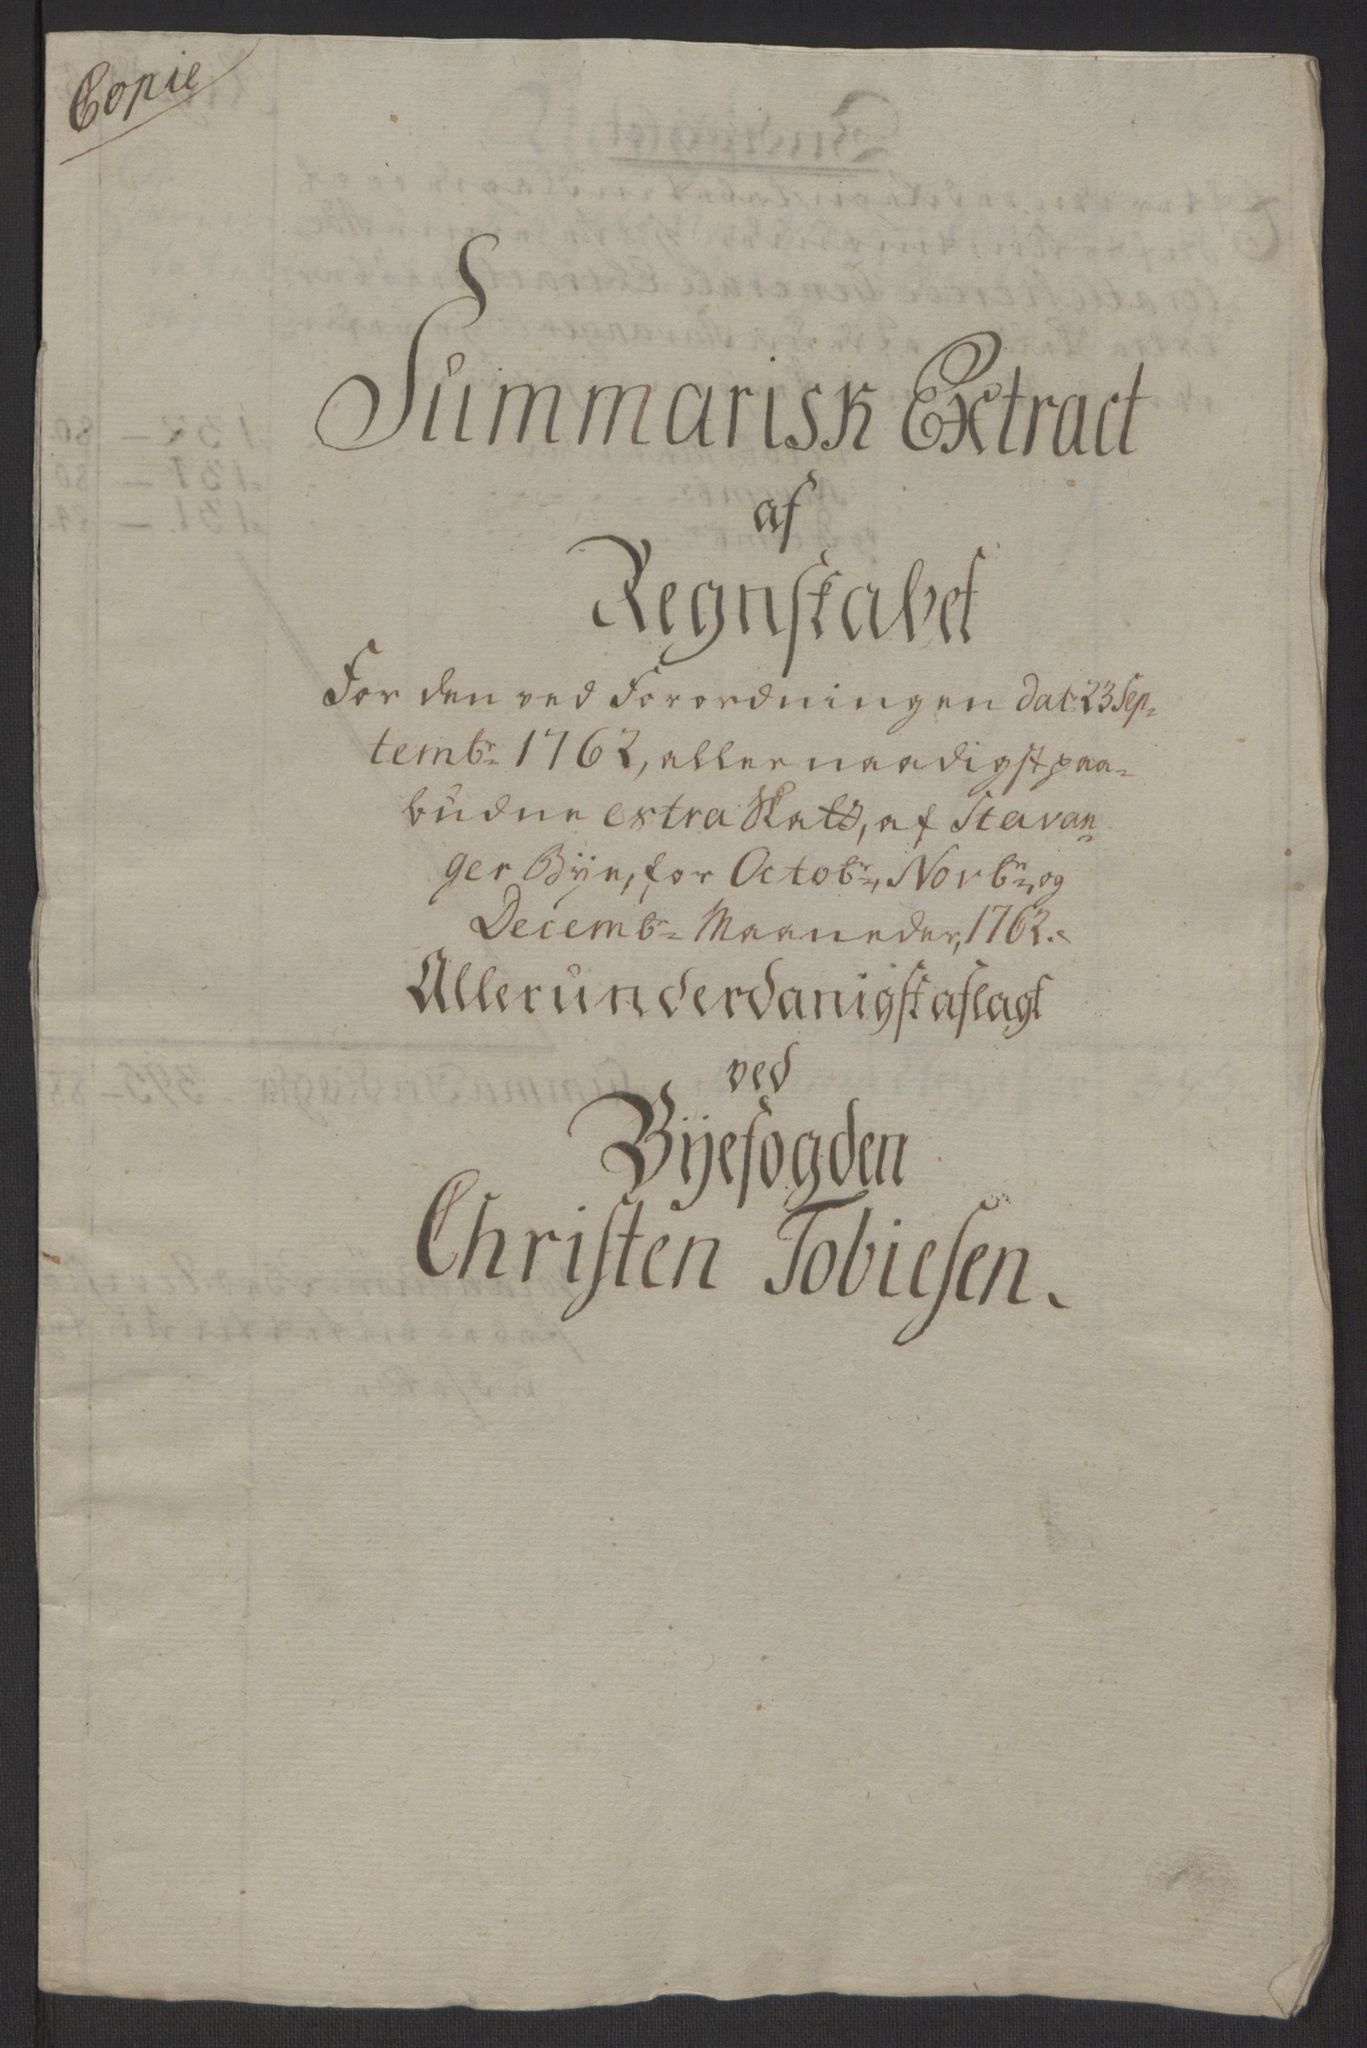 Copie
Summarisk Extract
af
Regnskabet
For den ved Forordningen dat: 23 Sep=
tembr: 1762, allernaadigst paa=
budne extra Skatt, af Stavan=
ger Bÿe, for Octobr:, Novbr:, og
Decembr: Maaneder, 1762.
Allerunderdanigst aflagt
ved
Bÿefogden
Christen Tobiesen.